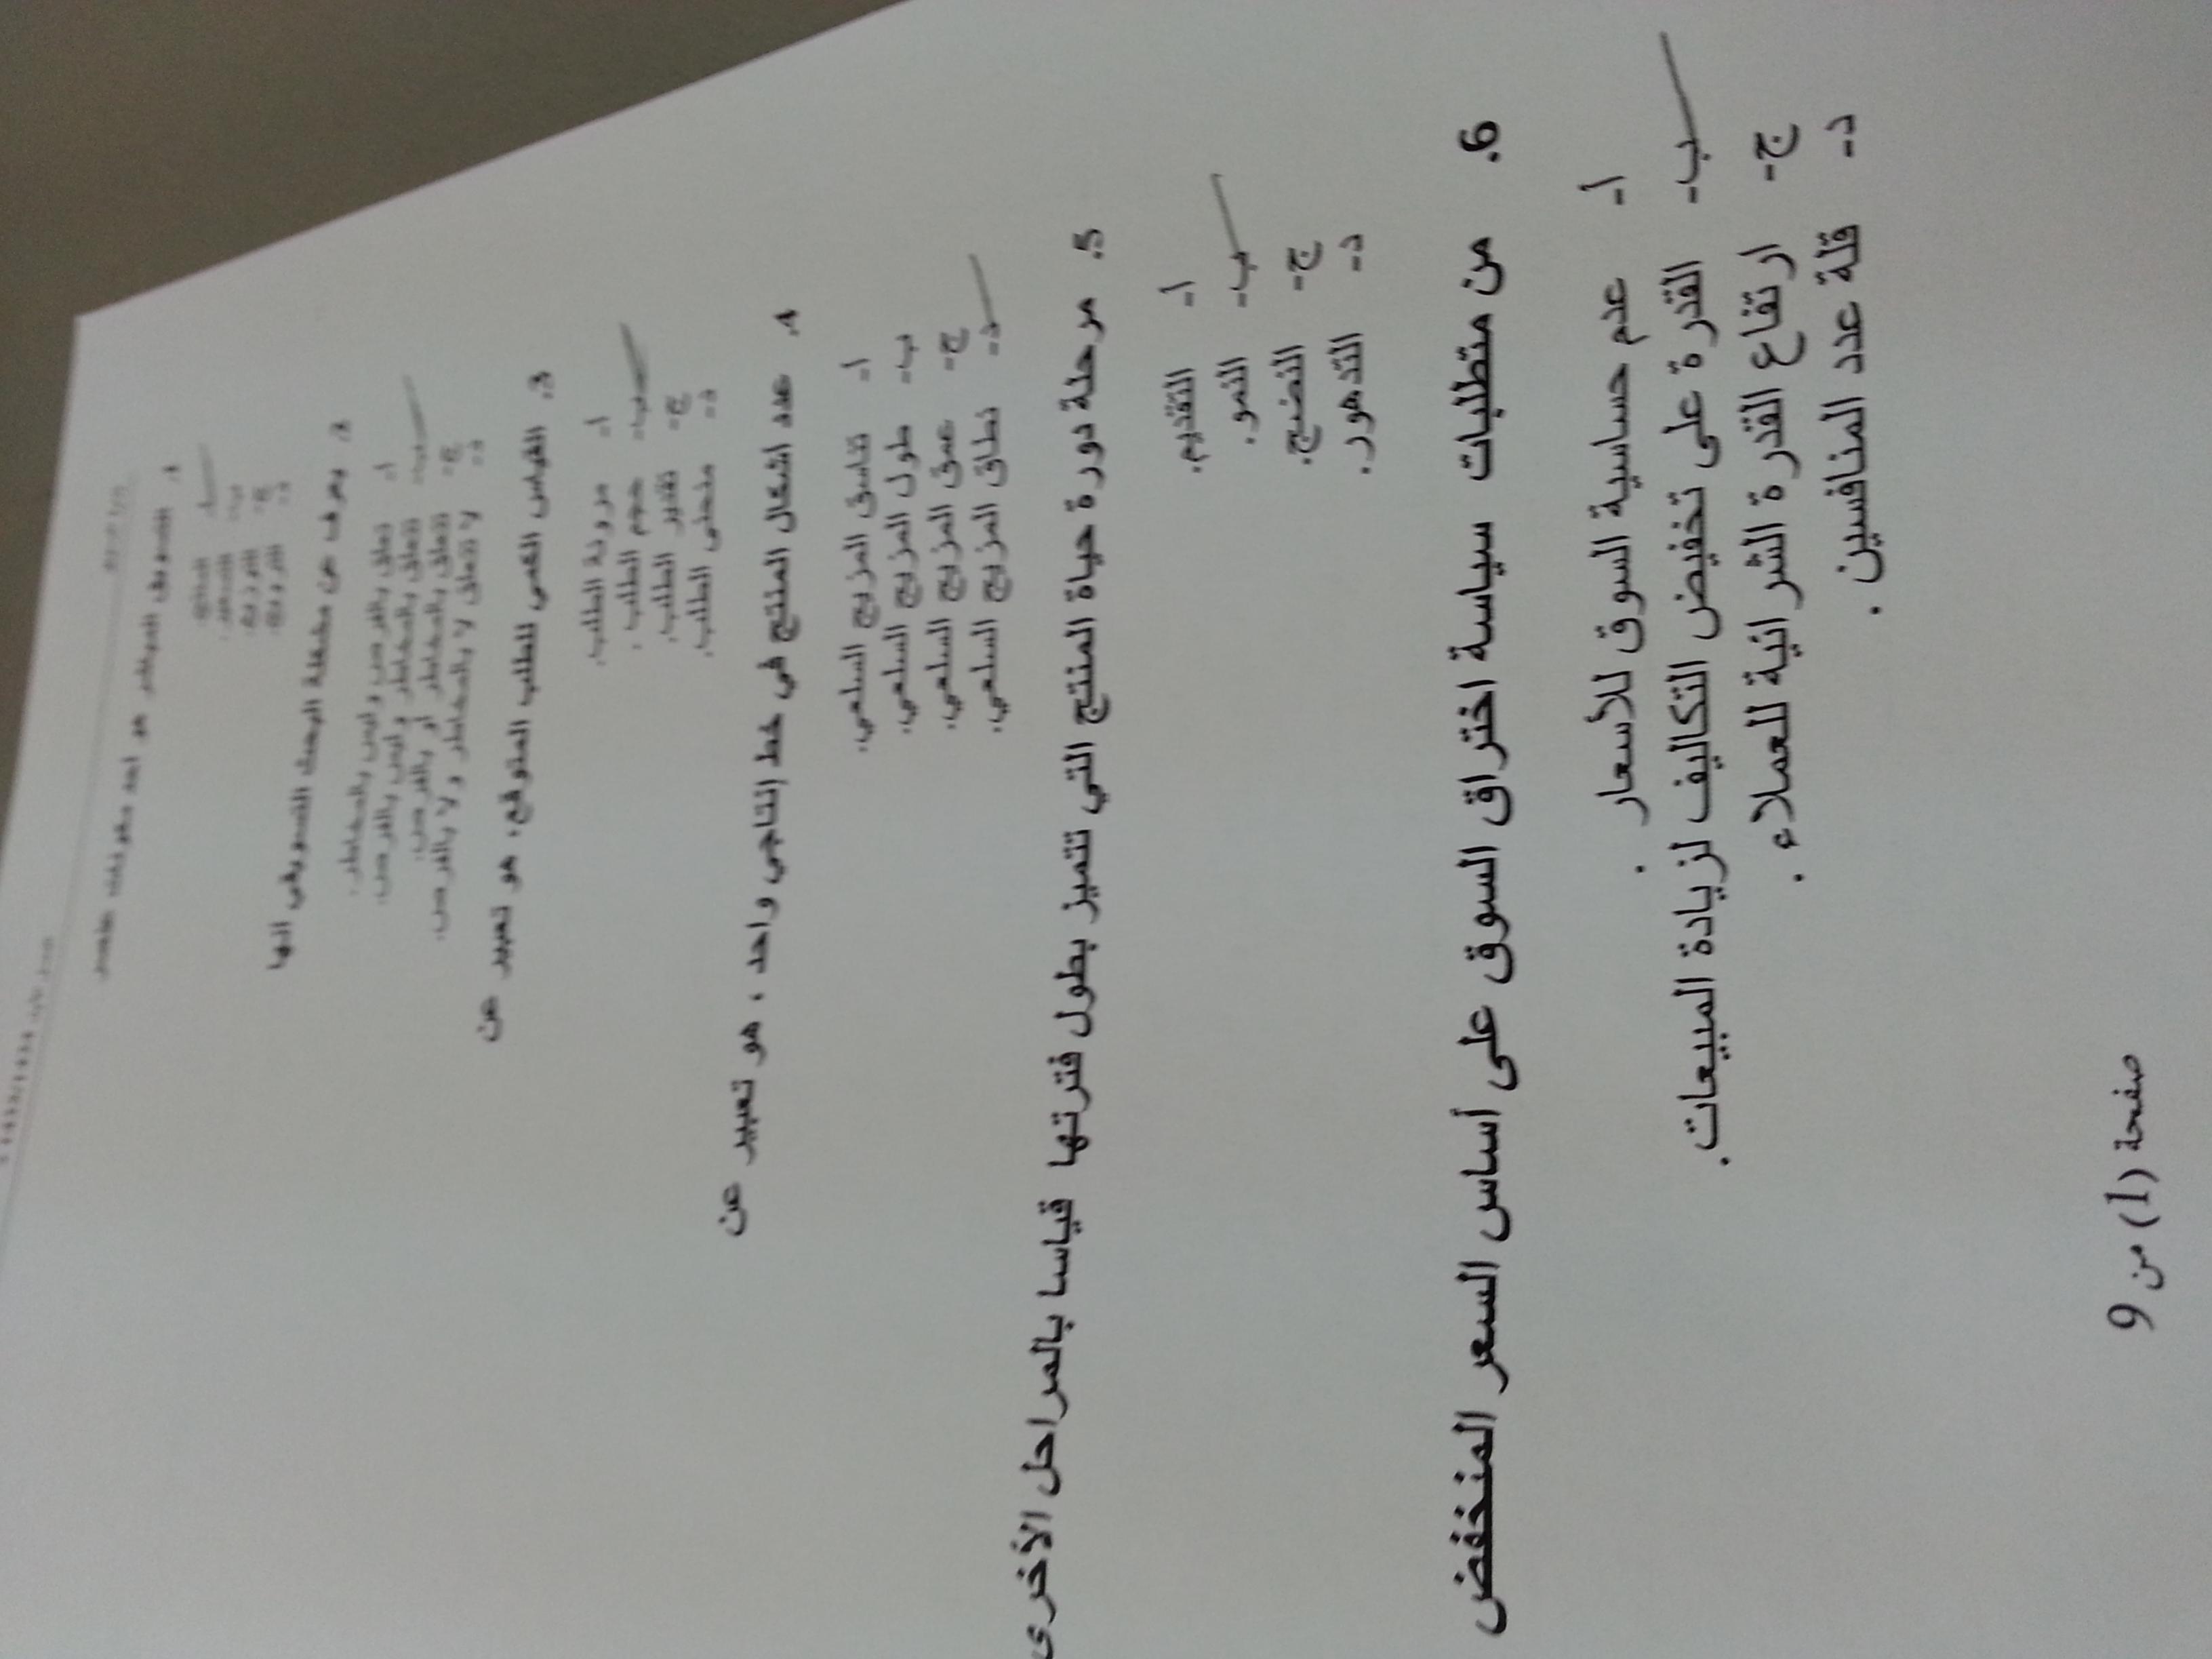 1. التسويق المباشر هو احد مكونات عنصر
أ- المنتج.
ب- التسعير.
ج- التوزيع.
د- الترويج.
2. يعرف عن مشكلة البحث التسويقي انها
أ- تتعلق بالفرص وليس بالمخاطر.
ب- تتعلق بالمخاطر وليس بالفرص.
ج- تتعلق بالمخاطر أو بالفرص.
د- لا تتعلق لا بالمخاطر ولا بالفرص.
3. القياس الكمي للطلب المتوقع، هو تعبير عن
أ- مرونة الطلب.
ب- حجم الطلب.
ج- تقدير الطلب.
د- منحنى الطلب.
4. عدد اشكال المنتج في خط إنتاجي واحد، هو تعبير عن
أ- تناسق المزيج السلعي.
ب- طول المزيج السلعي.
ج- عمق المزيج السلعي.
د- نطاق المزيج السلعي.
5. مرحلة دورة حياة المنتج التي تتميز بطول فترتها قياسا بالمراحل الأخرى
أ- التقديم.
ب- النمو.
ج- النضج.
د- التدهور.
6. من متطلبات سياسة اختراق السوق على أساس السعر المنخفض
أ- عدم حساسية السوق للأسعار .
ب- القدرة على تخفيض التكاليف لزيادة المبيعات.
ج- ارتفاع القدرة الشرائية للعملاء .
د- قلة عدد المنافسين .
صفحة (1) من 9